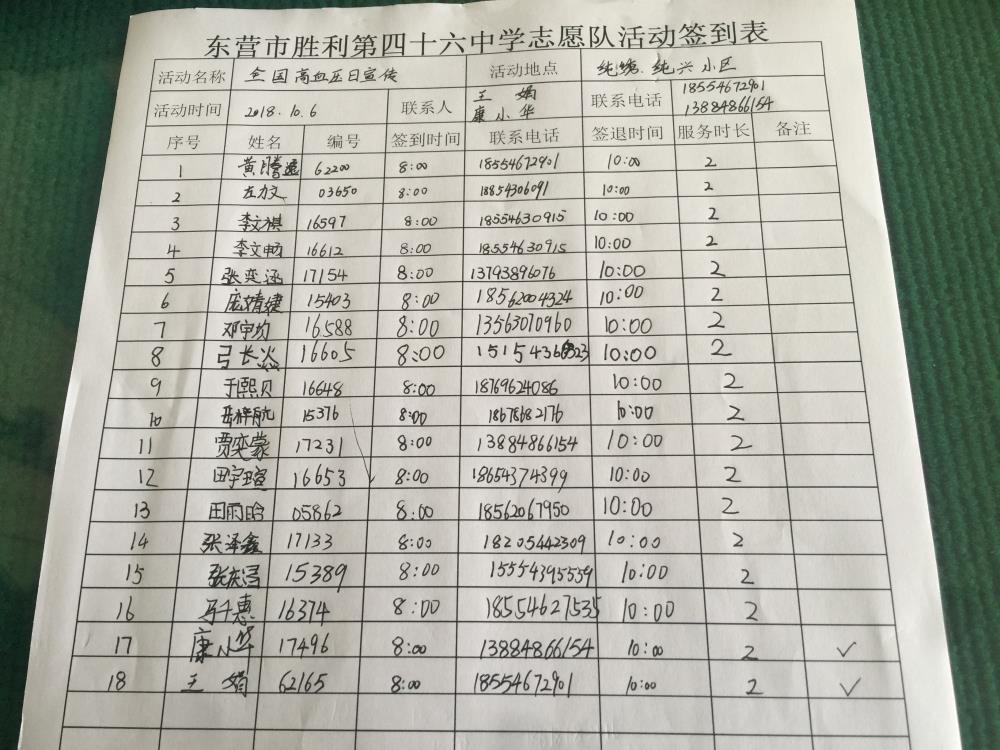 东营市胜利第四十六中学志愿队活动签到表
活动名称 全国高血压日宣传 活动地点 纯锦、纯兴小区
活动时间 2018.10.6 联系人 王娟 康小华 联系电话 18554672901 13884866154
序号 姓名 编号 签到时间 联系电话 签退时间 服务时长 备注
1 黄腾逸 62200 8:00 18554672901 10:00 2
2 左力文 03650 8:00 18854306091 10:00 2
3 李文祺 16597 8:00 18554630915 10:00 2
4 李文畅 16612 8:00 18554630915 10:00 2
5 张奕涵 17154 8:00 13793896076 10:00 2
6 庞婧婕 15403 8:00 18562004324 10:00 2
7 邓宇均 16588 8:00 13563070960 10:00 2
8 弓长焱 16605 8:00 10:00 2
9 于熙贝 16648 8:00 18769624086 10:00 2
10 岳梓航 15376 8:00 18678682176 10:00 2
11 贾奕蒙 17231 8:00 13884866154 10:00 2
12 田宇瑄 16653 8:00 18654374399 10:00 2
13 田雨晗 05862 8:00 18562067950 10:00 2
14 张泽鑫 17133 8:00 18205442309 10:00 2
15 15389 8:00 15554395559 10:00 2
16 马千惠 16374 8:00 18554627535 10:00 2
17 康小华 17496 8:00 13884866154 10:00 2 ✓
18 王娟 62165 8:00 18554672901 10:00 2 ✓